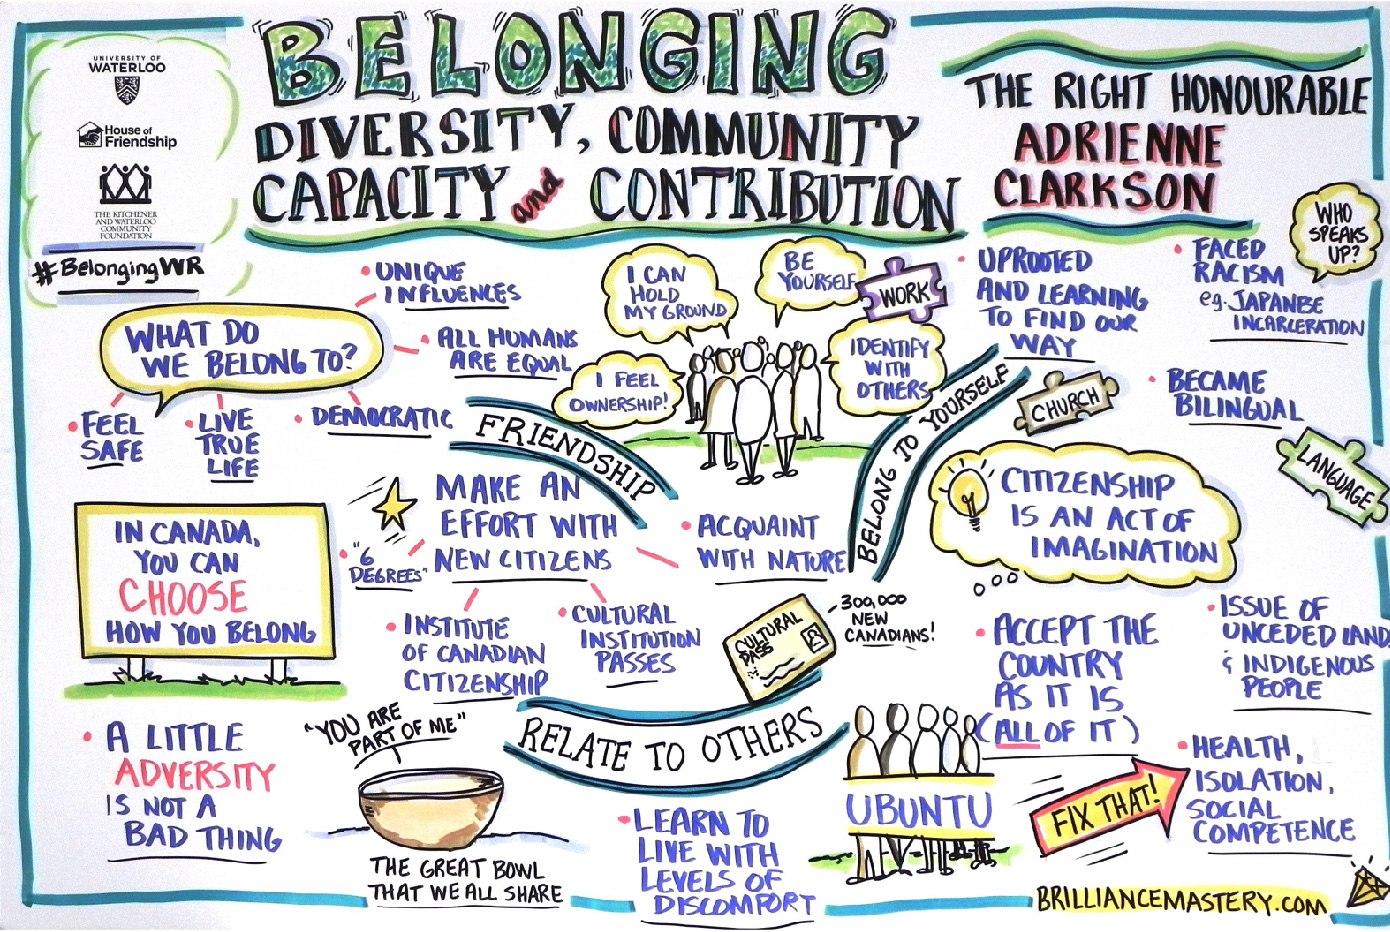 BELONGING
DIVERSITY, COMMUNITY
CAPACITY and CONTRIBUTION
THE RIGHT HONOURABLE
ADRIENNE
CLARKSON
UNIVERSITY OF
WATERLOO
House of
Friendship
THE KITCHENER
AND WATERLOO
COMMUNITY
FOUNDATION
#BelongingWR
WHAT DO
WE BELONG TO?
• UNIQUE
INFLUENCES
• ALL HUMANS
ARE EQUAL
• DEMOCRATIC
• LIVE
TRUE
LIFE
• FEEL
SAFE
I CAN
HOLD
MY GROUND
BE
YOURSELF
I FEEL
OWNERSHIP!
IDENTIFY
WITH
OTHERS
WORK
• UPROOTED
AND LEARNING
TO FIND OUR
WAY
• FACED
RACISM
eg. JAPANESE
INCARCERATION
WHO
SPEAKS
UP?
CHURCH
• BECAME
BILINGUAL
LANGUAGE
FRIENDSHIP
BELONG TO YOURSELF
CITIZENSHIP
IS AN ACT OF
IMAGINATION
IN CANADA,
YOU CAN
CHOOSE
HOW YOU BELONG
MAKE AN
EFFORT WITH
NEW CITIZENS
• "6
DEGREES"
• INSTITUTE
OF CANADIAN
CITIZENSHIP
• CULTURAL
INSTITUTION
PASSES
• ACQUAINT
WITH NATURE
CULTURAL
PASS
300,000
NEW
CANADIANS!
• ACCEPT THE
COUNTRY
AS IT IS
(ALL OF IT)
• ISSUE OF
UNCEDED LAND
& INDIGENOUS
PEOPLE
• A LITTLE
ADVERSITY
IS NOT A
BAD THING
"YOU ARE
PART OF ME"
THE GREAT BOWL
THAT WE ALL SHARE
RELATE TO OTHERS
• LEARN TO
LIVE WITH
LEVELS OF
DISCOMFORT
UBUNTU
FIX THAT!
• HEALTH,
ISOLATION,
SOCIAL
COMPETENCE
BRILLIANCEMASTERY.COM